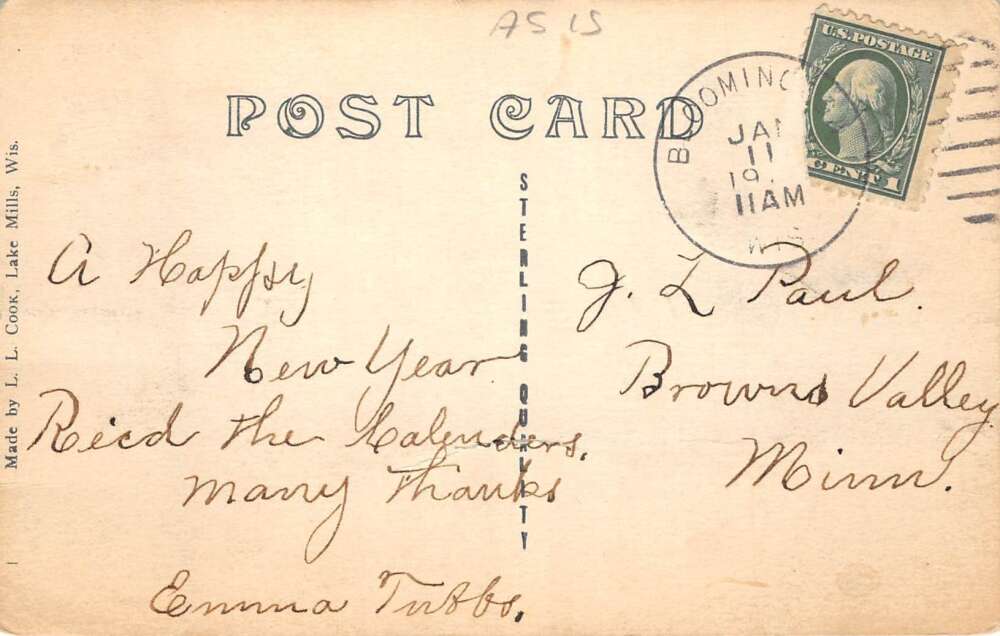 AS IS
POST CARD
Made by L. L. COOK, Lake Mills, Wis.
STERLING QUALITY
U.S. POSTAGE
1 CENT 1
JAN
11
19
11AM
WIS
A Happy
New Year
Recd the Calenders,
Many Thanks
Emma Tubbs,
J. L Paul.
Browns Valley
Minn.